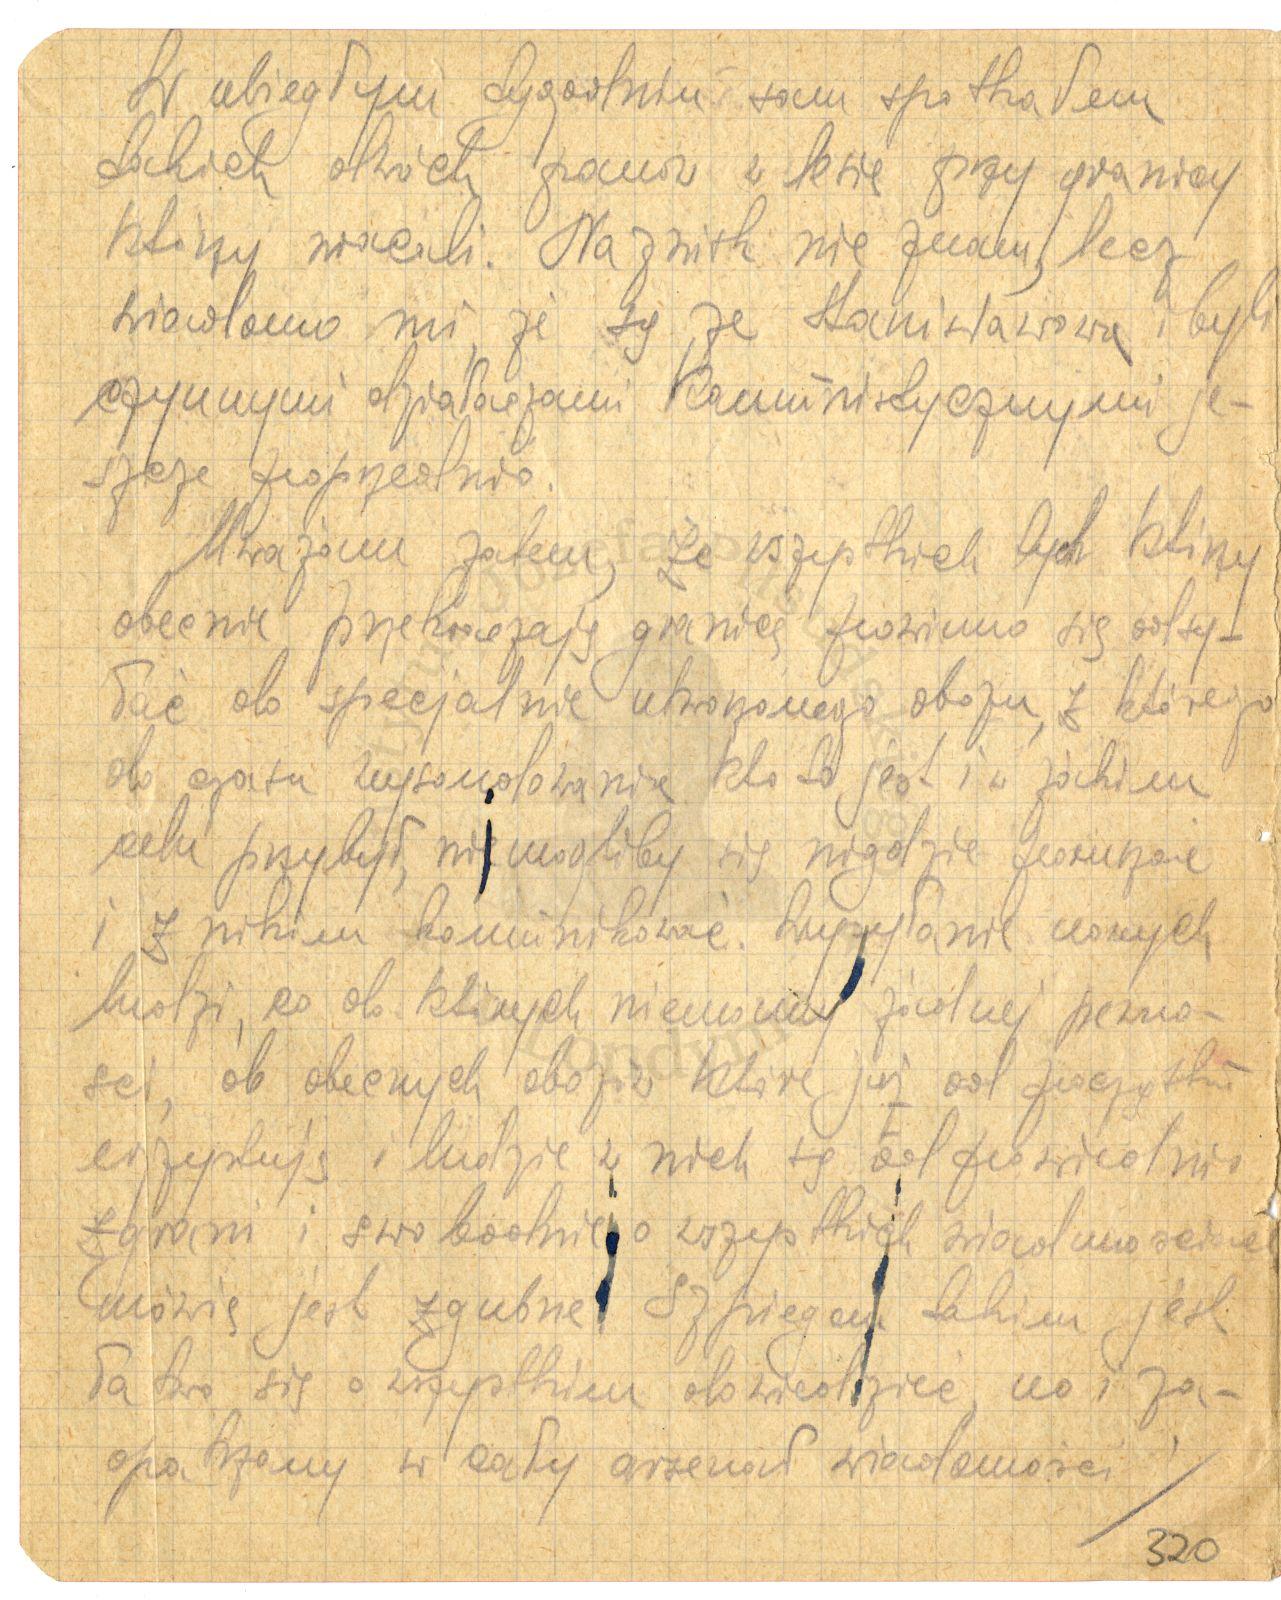 W ubiegłym tygodniu sam spotkałem
takich dwóch panów w lesie przy granicy
którzy wracali. Nazwisk nie znam, lecz
wiadomo mi, że są ze Stanisławowa i byli
czynnymi działaczami komunistycznymi je-
szcze poprzednio.
Uważam zatem, że wszystkich tych którzy
obecnie przekraczają granicę powinno się odsy-
łać do specjalnie utworzonego obozu, z którego
do czasu wysondowania kto to jest i w jakim
celu przybył, nie mogliby się nigdzie poruszać
i z nikim komunikować. Wysyłanie nowych
ludzi, co do których niemamy żadnej pewno-
sci, do obecnych obozów które już od początku
egzystują i ludzie w nich są odpowiednio
zgrani i swobodnie o wszystkich wiadomosciach
mówią jest zgubne. Szpiegom takim jest
łatwo się o wszystkim dowiedzieć, no i za-
opatrzony w cały arsenał wiadomości
320
Instytut Józefa Piłsudskiego
Londyn